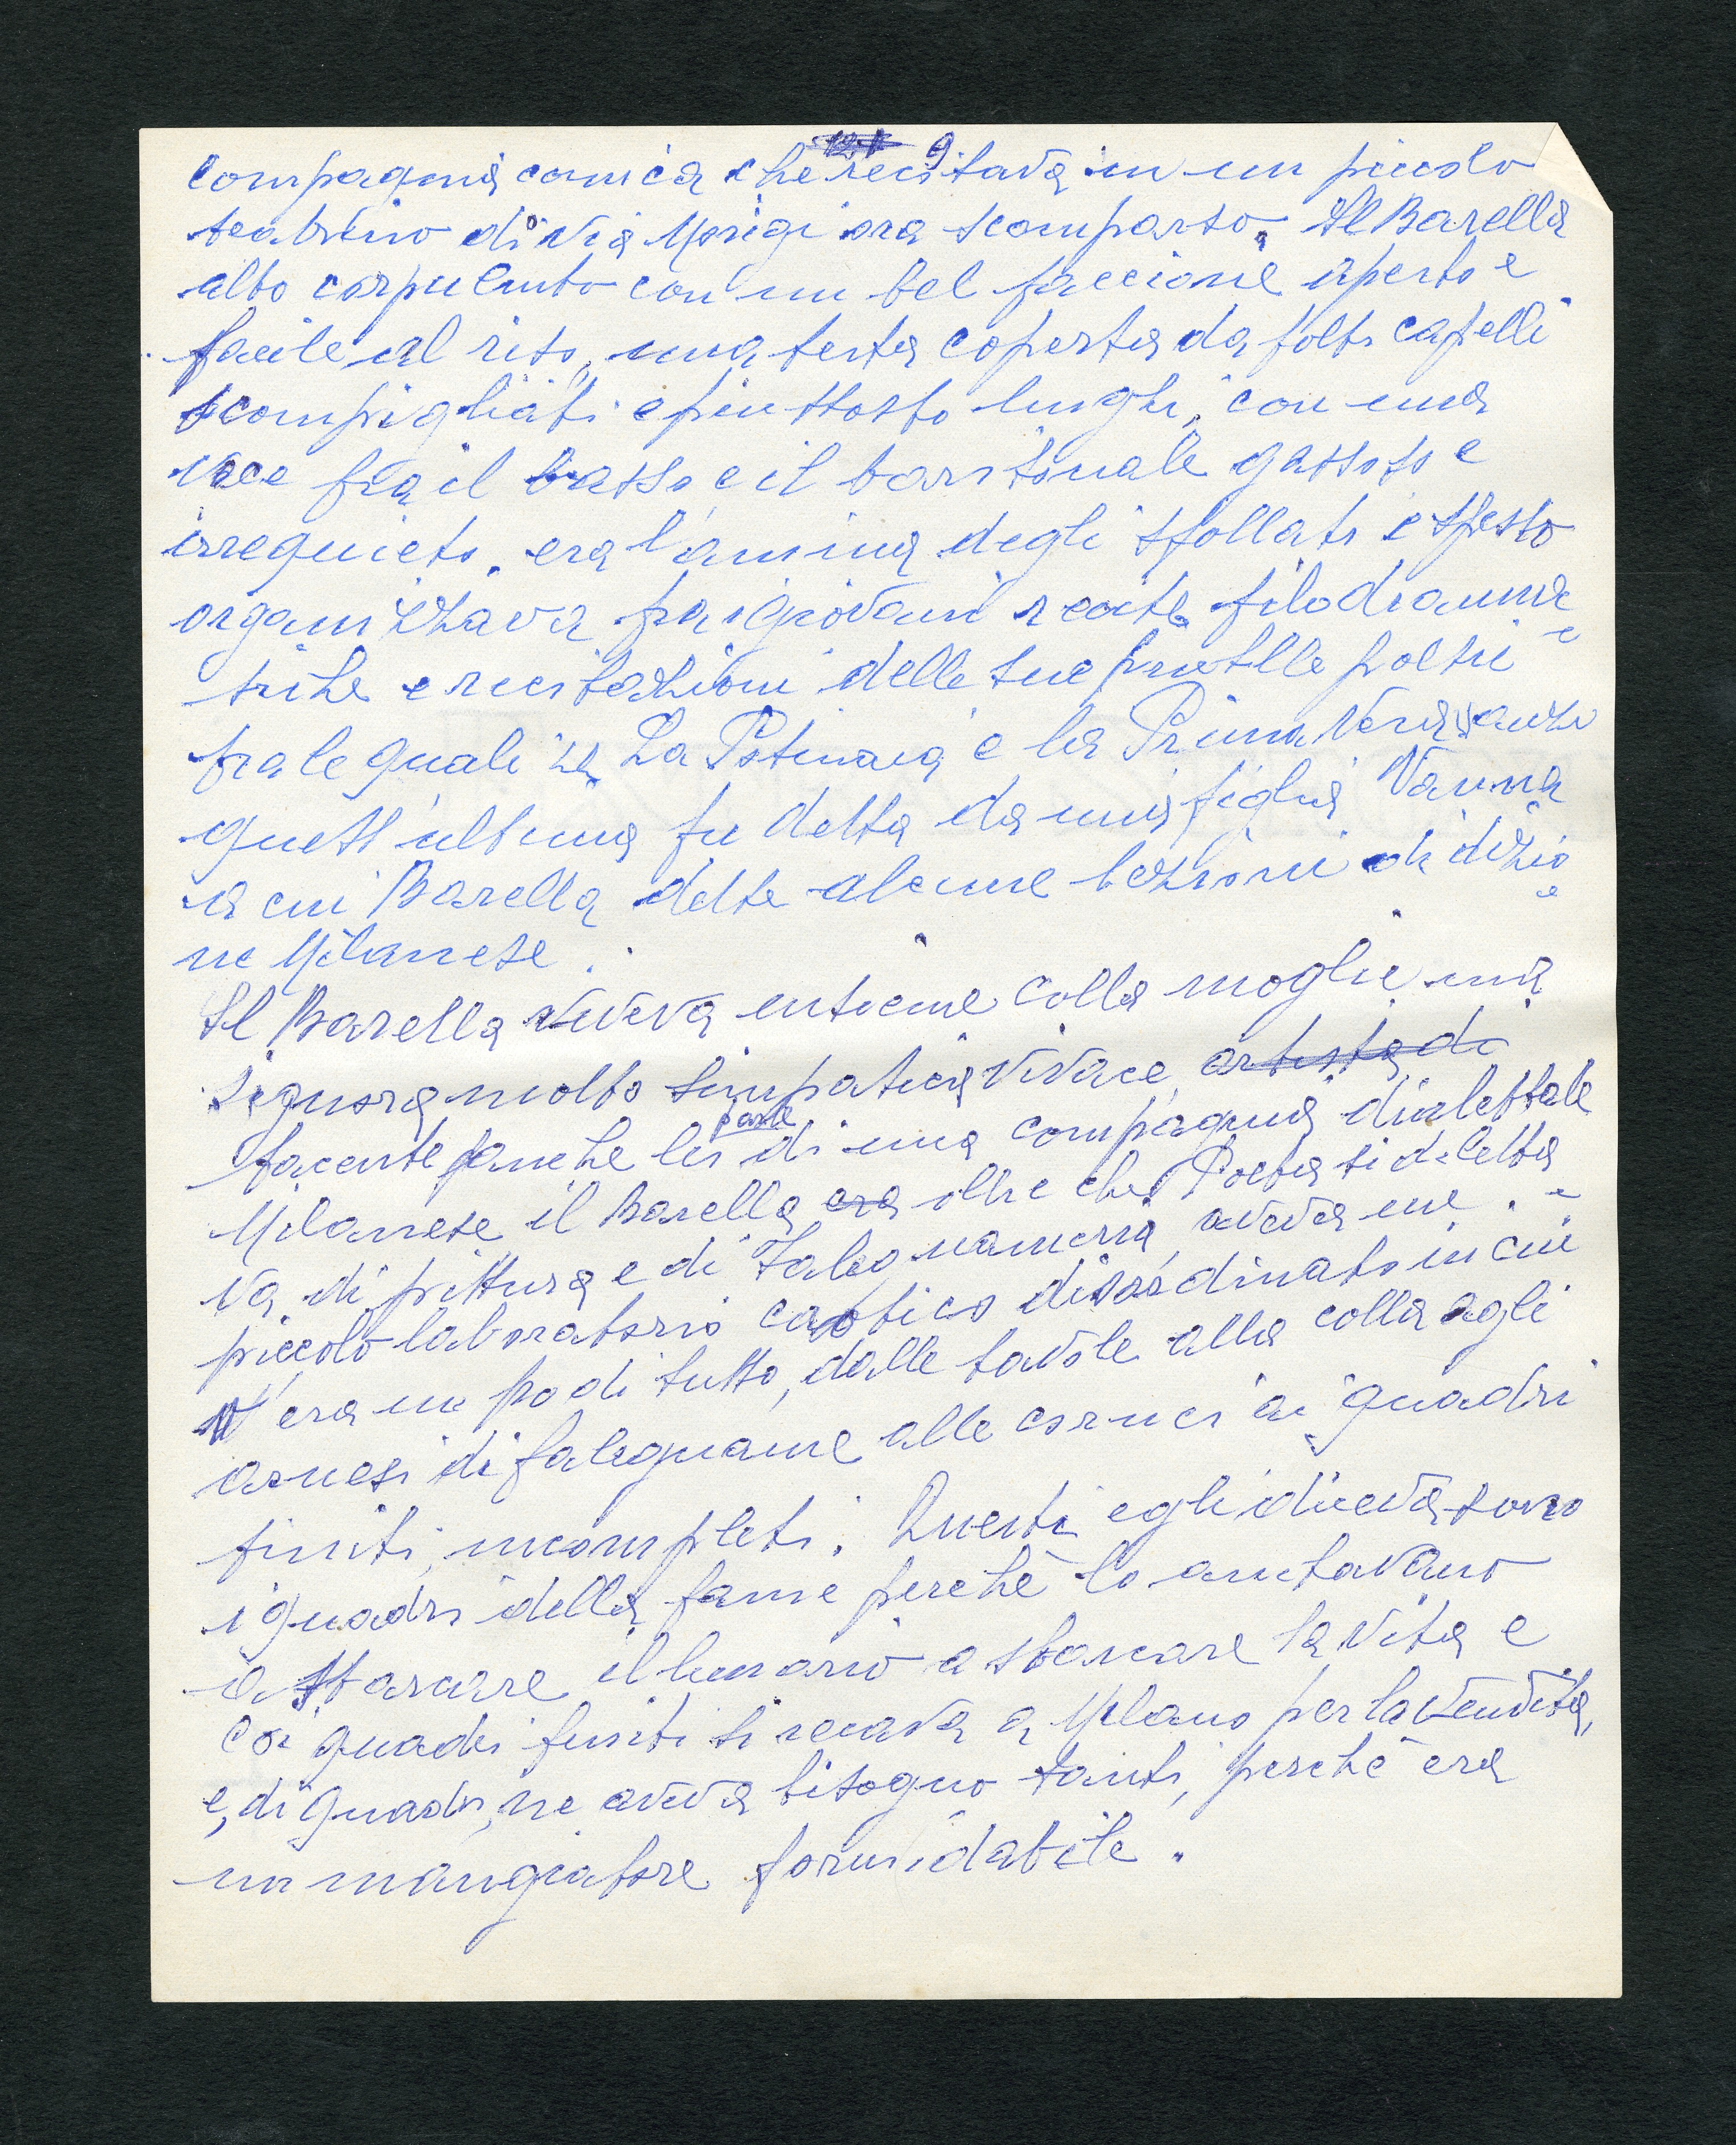 9
compagnia comica che recitava in un piccolo
teatrino di via Morigi ora scomparso. Il Barella
alto corpulento con un bel faccione aperto e
facile al riso, una testa coperta da folti capelli
scompigliati e piuttosto lunghi, con una
voce fra il basso e il baritonale
irrequieto. era l'anima degli sfollati e spesso
organizzava fra i giovani recite filodramma
tiche e recitazioni delle sue poesie
fra le quali La e la Prima Vera anzi
quest'ultima fu detta da mia figlia Vanna
a cui Barella dette alcune lezioni di dizio
ne Milanese.
Il Barella viveva insieme colla moglie una
signora molto simpatica vivace artista di
facente anche lei parte di una compagnia dialettale
Milanese il Barella era oltre che Poeta si diletta
va di pittura e di Falegnameria aveva un
piccolo laboratorio caotico disordinato in cui
v'era un po di tutto, dalle tavole alla colla agli
arnesi di falegname alle cornici ai quadri
finiti, incompleti. Questi egli diceva sono
i quadri della fame perchè lo aiutavano
a sbarcare il lunario a sbarcare la vita e
coi quadri finiti si recava a Milano per la vendita,
e, di quadri, ne aveva bisogno tanti, perchè era
un mangiatore formidabile.